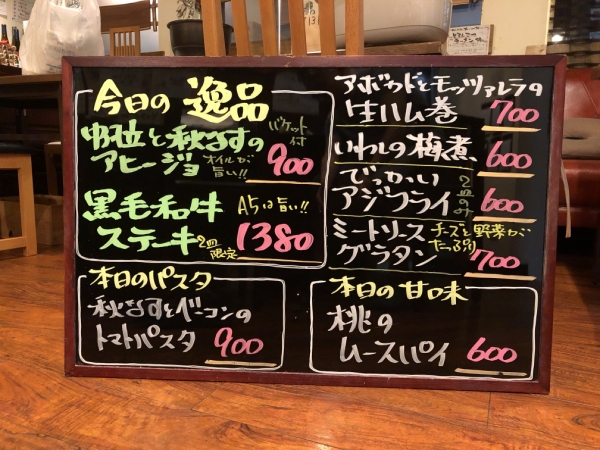 今日の 逸品
と秋なすの
アヒージョ
バケット付
オイルが旨い!!
900
黒毛和牛
ステーキ
A5は旨い!!
2皿限定
1380
本日のパスタ
秋なすとベーコンの
トマトパスタ 900
アボカドとモッツァレラの
生ハム巻 700
いわしの梅煮 600
でっかい
アジフライ
2皿のみ
600
ミートソース
グラタン
チーズと野菜が
たっぷり
700
本日の甘味
桃の
ムースパイ 600